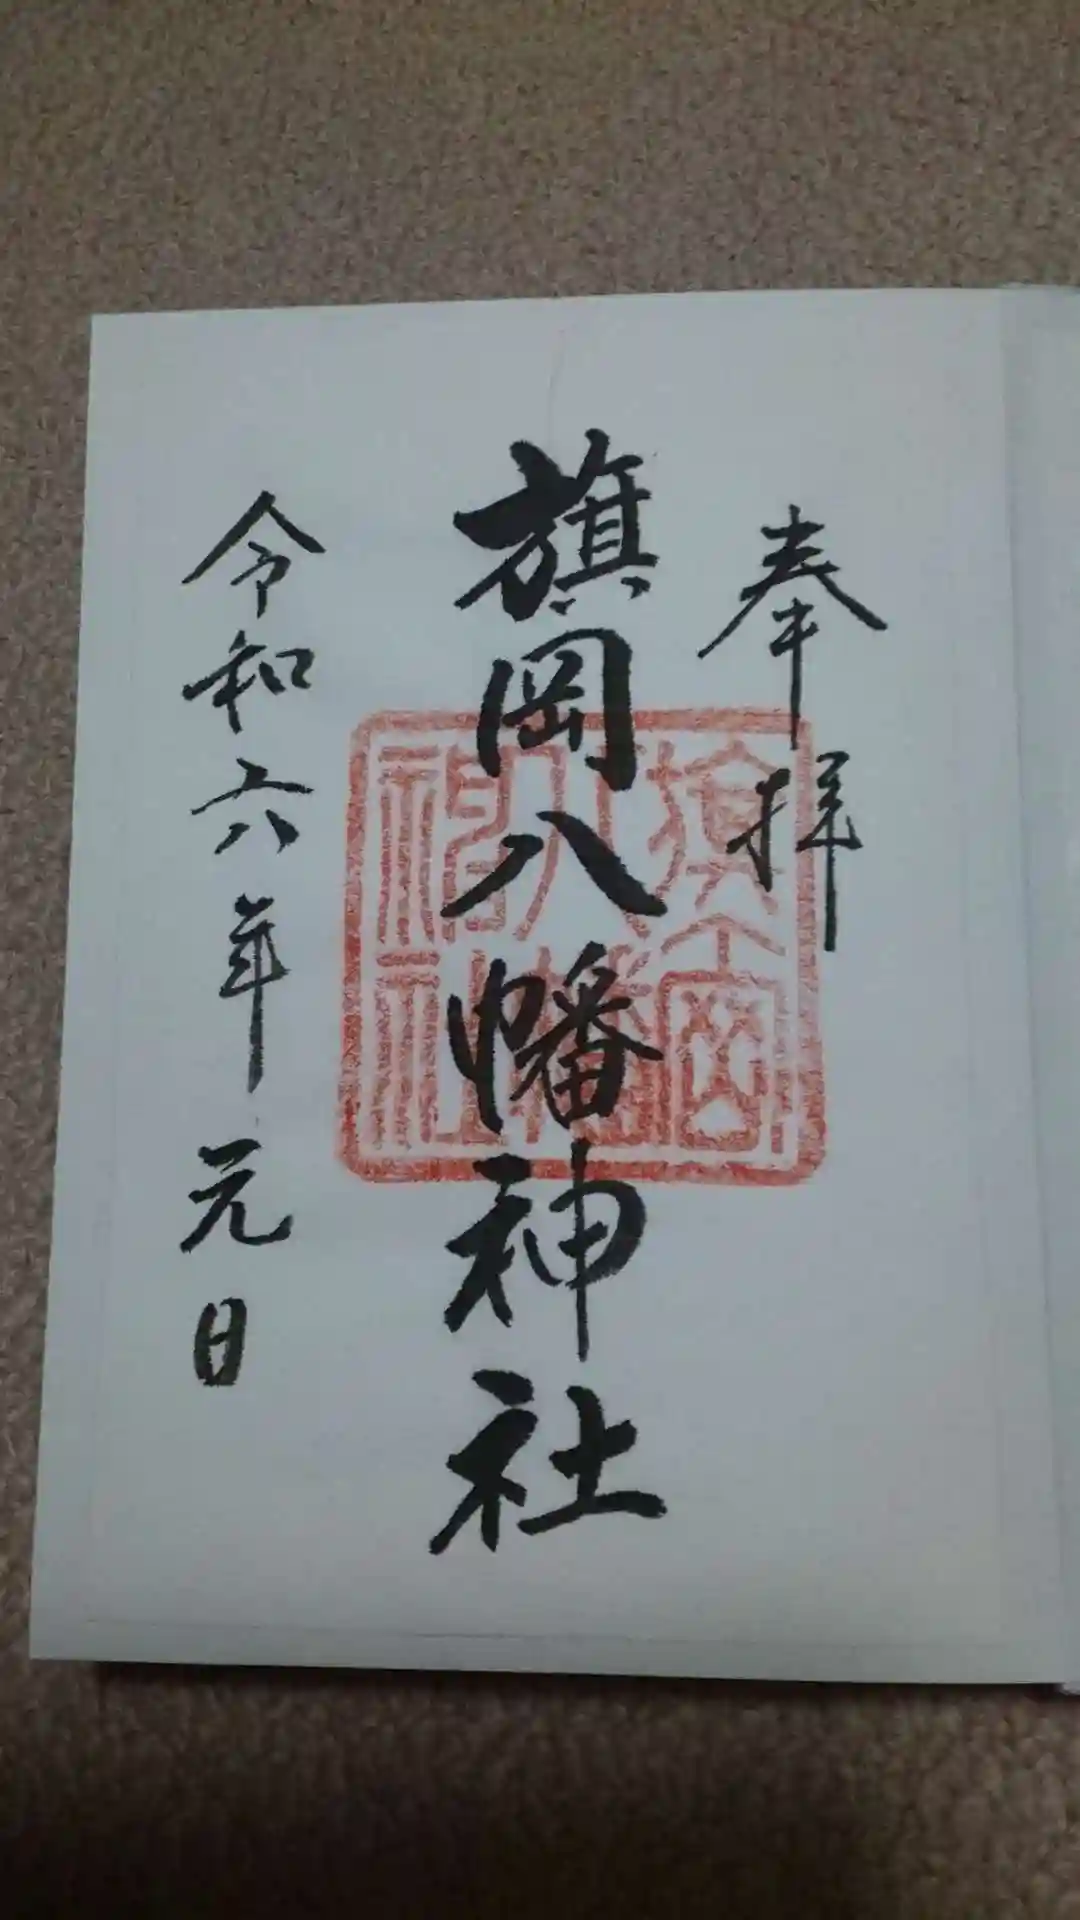 奉拝
旗岡八幡神社
旗岡
八幡
神社
令和六年元日